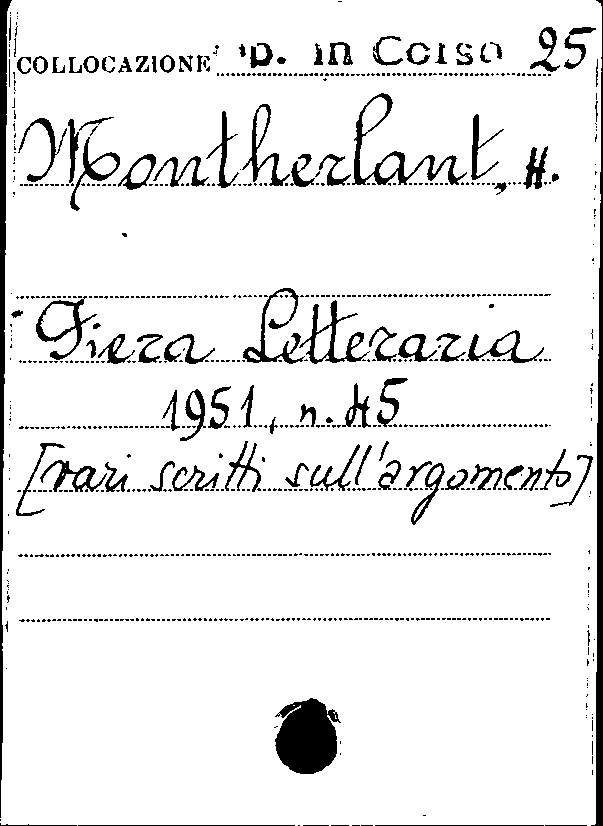 COLLOCAZIONE p. in Corso 25
Montherlant, H.
Fiera Letteraria
1951, n. 45
[vari scritti sull'argomento]